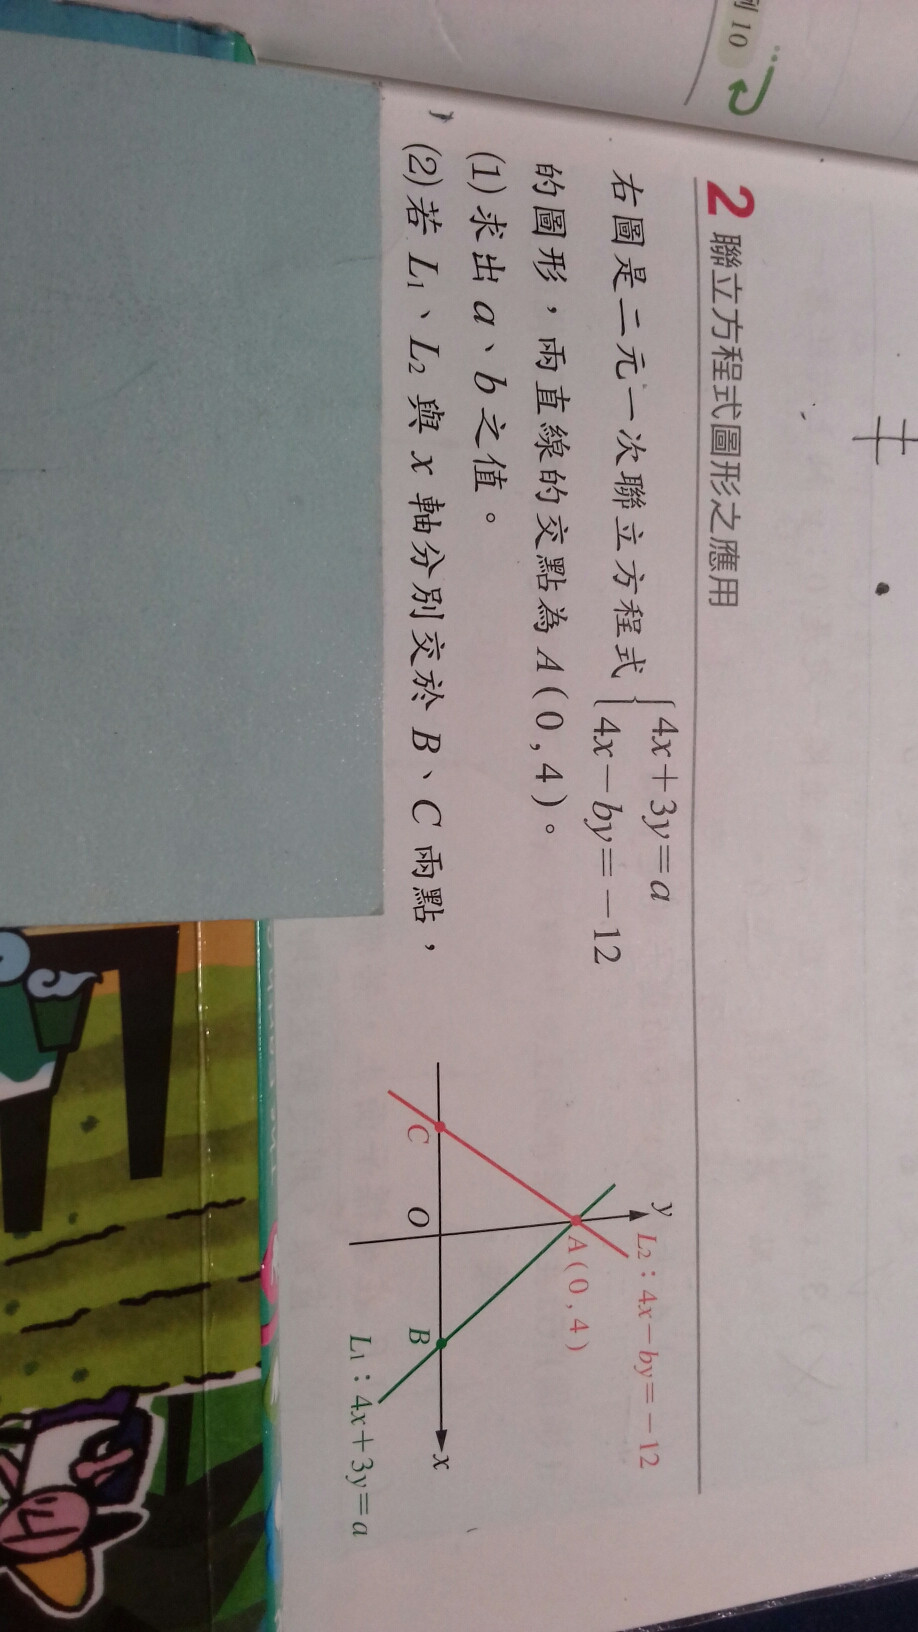 列 10
2 聯立方程式圖形之應用
右圖是二元一次聯立方程式 { 4x+3y=a
4x-by=-12
的圖形,兩直線的交點為 A(0,4)。
(1)求出 a、b 之值。
(2)若 L₁、L₂ 與 x 軸分別交於 B、C 兩點,
y
L₂:4x-by=-12
A(0,4)
C
O
B
x
L₁:4x+3y=a